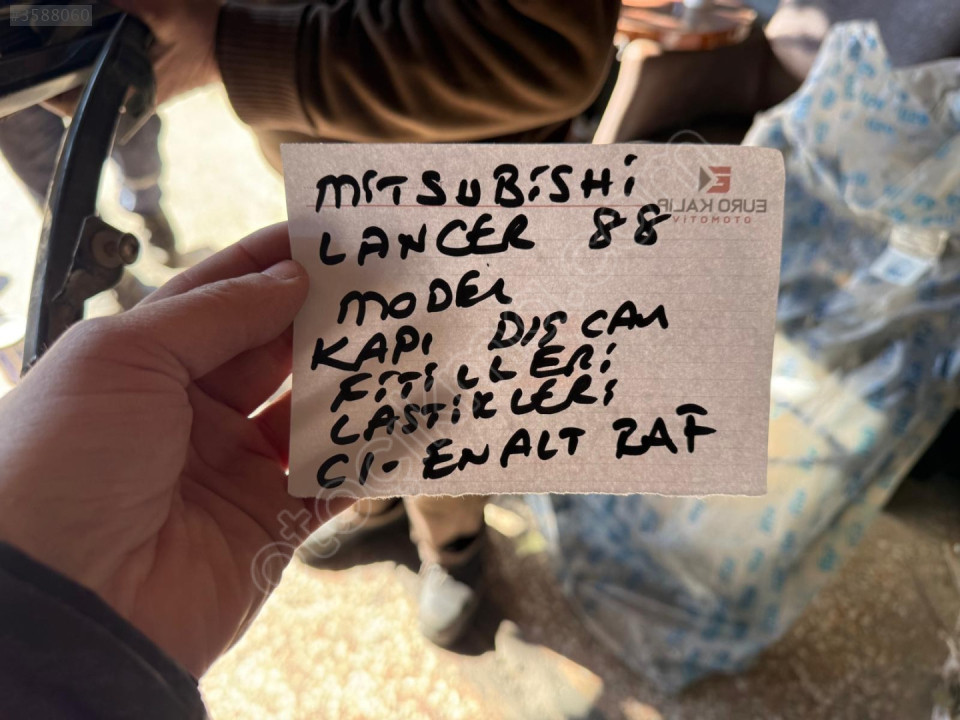 #3588060
MİTSUBİSHİ
LANCER 88
MODEL
KAPI DIŞ CAM
FİTİLLERİ
LASTİKLERİ
C1- EN ALT RAF
EURO KALIP
OTOMOTİV